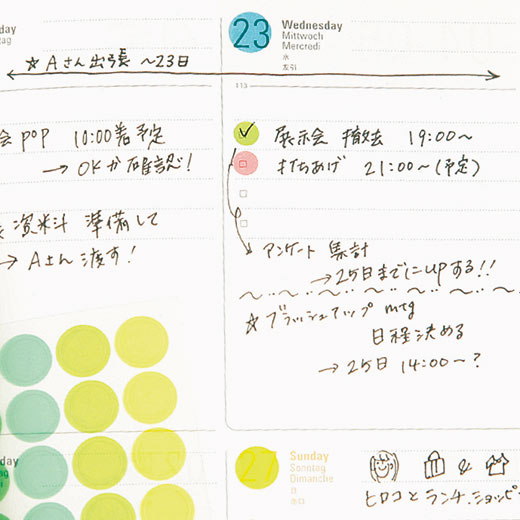 day
tag
☆ Aさん出張 〜23日
会 pop 10:00着予定
→ OKか確認!
資料 準備して
→ Aさん渡す!
23 Wednesday
Mittwoch
Mercredi
水
友引
113
展示会 撤去 19:00〜
打ちあげ 21:00〜(予定)
アンケート 集計
→25日までにupする!!
☆ブラッシュアップ mtg
日程決める
→25日 14:00〜?
day
27 Sunday
Sonntag
Dimanche
日
ヒロコとランチ.ショッピ